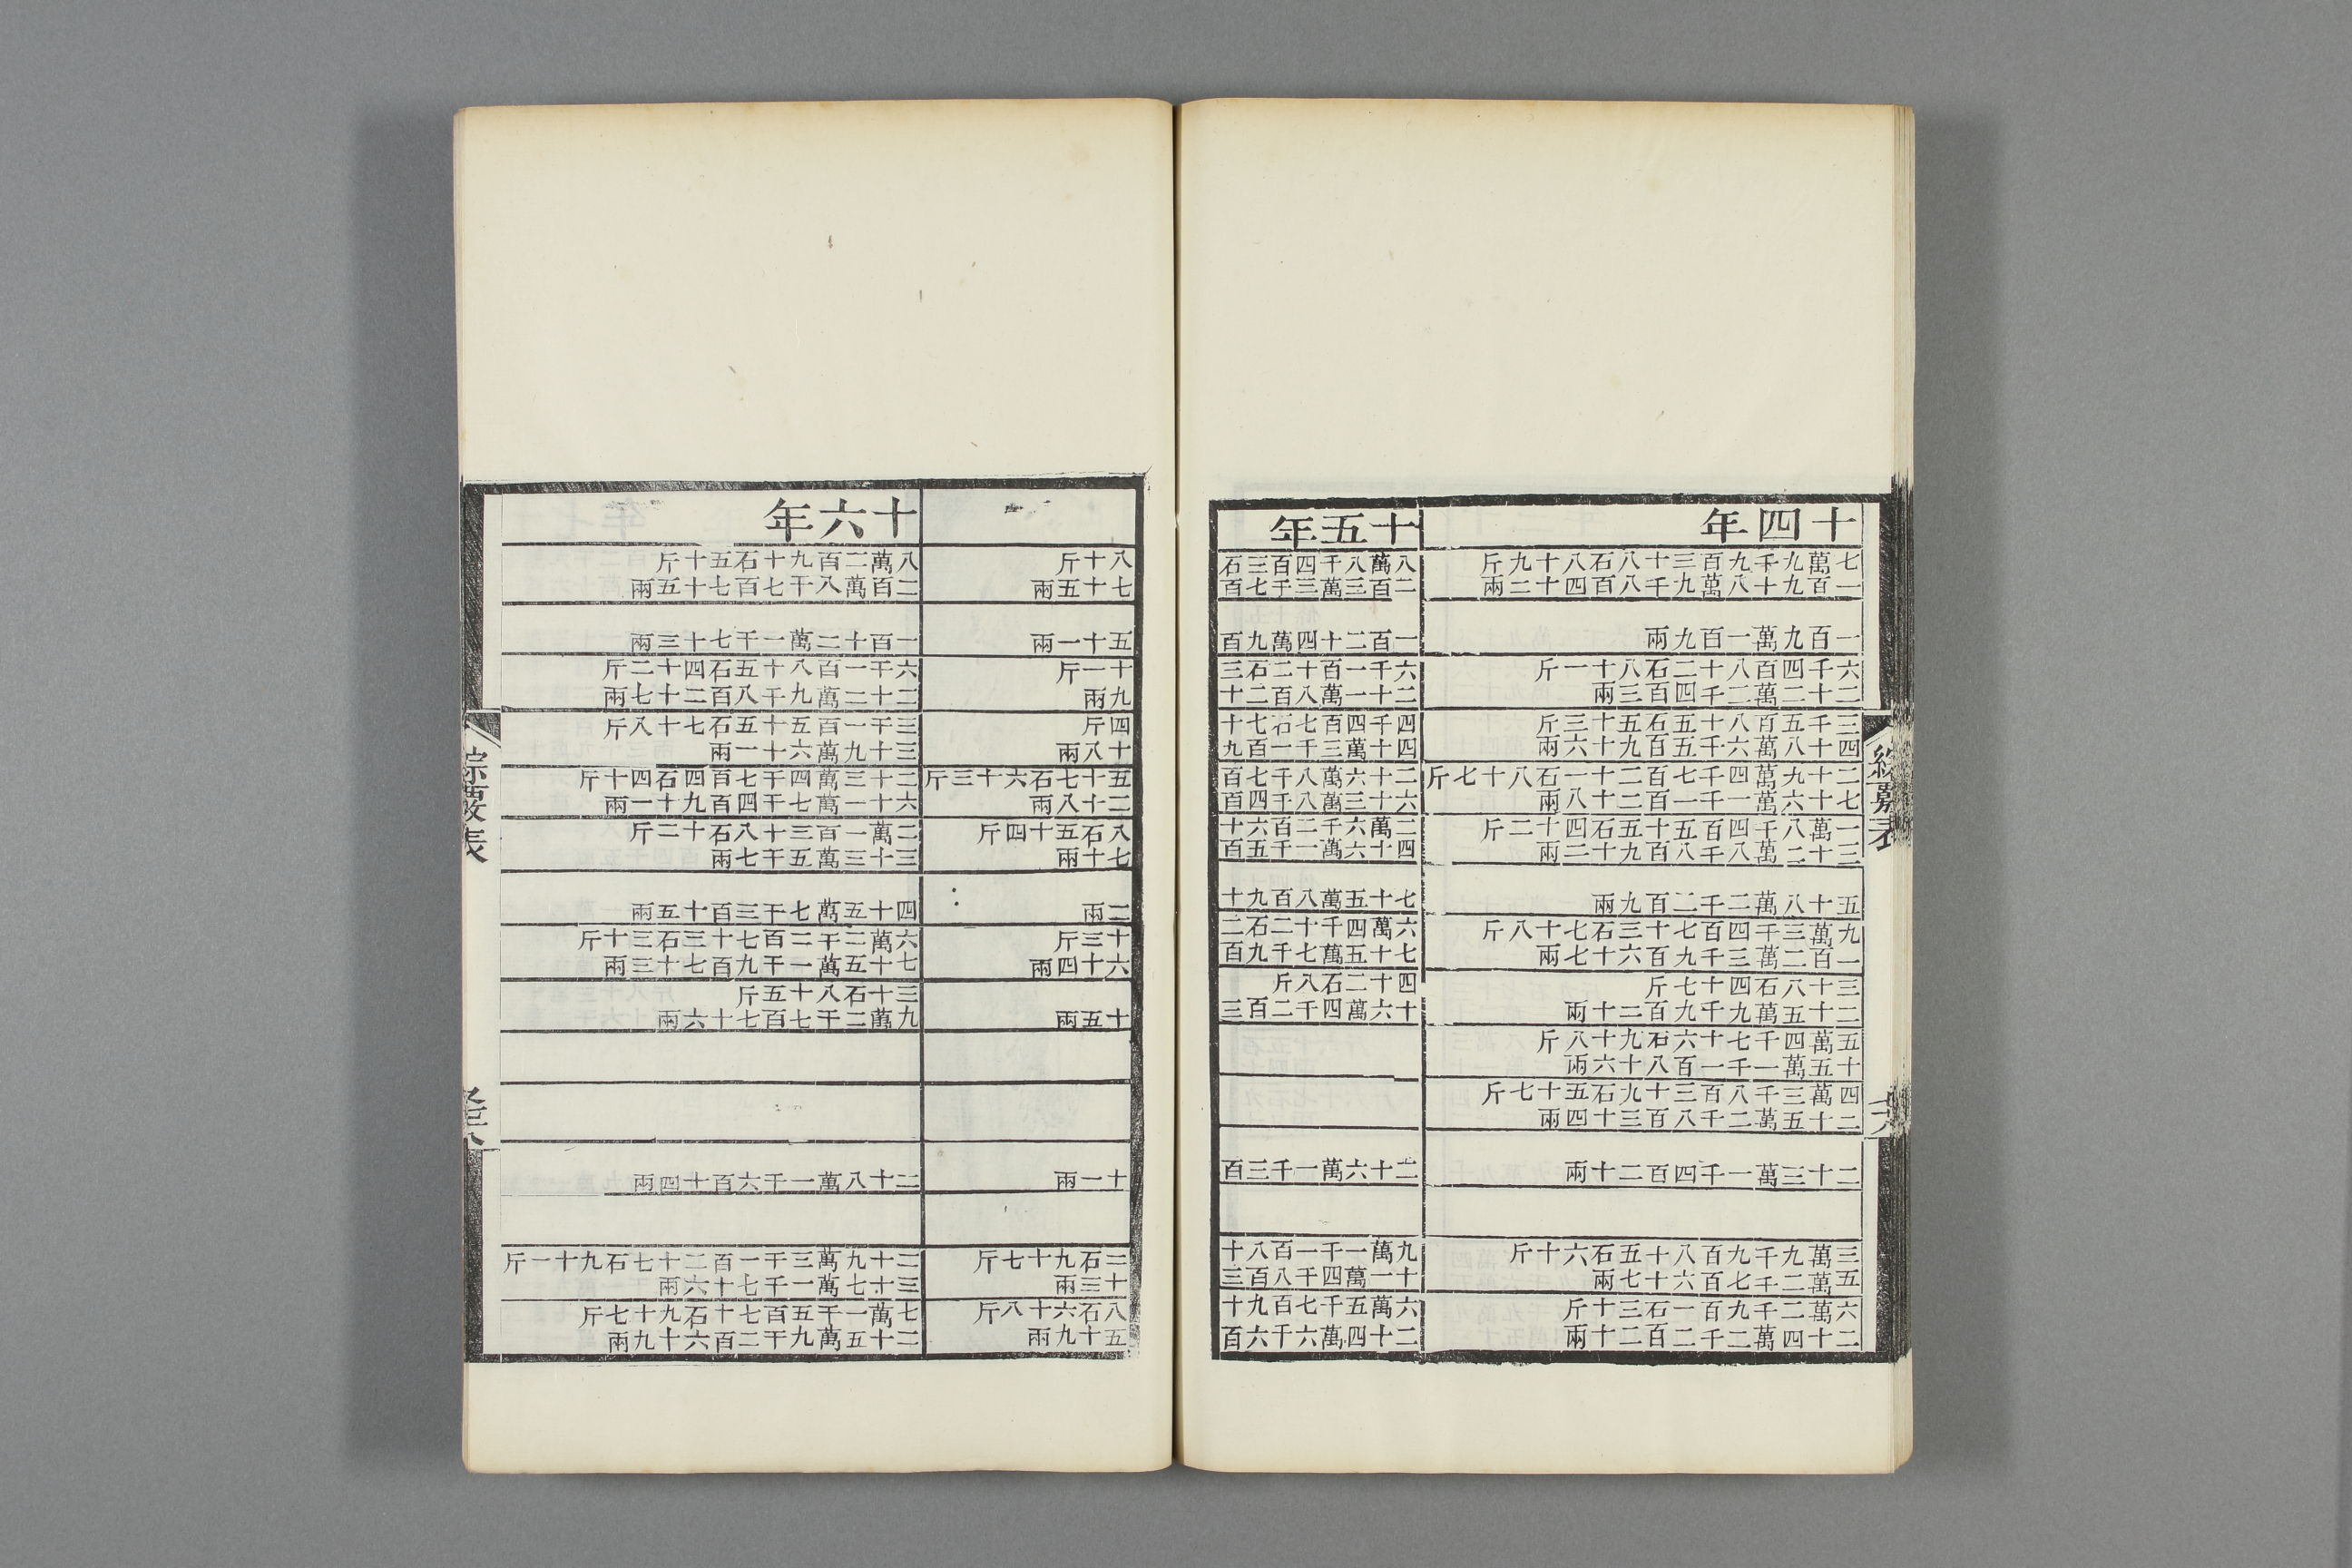 綜覈表
十四年
七萬九千九百三十八石八十九斤
一百九十八萬九千八百四十二兩
一百九萬一百九兩
六千四百八十二石八十一斤
二十二萬二千四百三兩
三千五百八十五石五十三斤
四十八萬六千五百九十六兩
二十九萬四千七百二十一石八十七斤
七十六萬一千一百二十八兩
一萬八千四百五十五石四十二斤
三十二萬八千八百九十二兩
五十八萬二千二百九兩
九萬三千四百七十三石七十八斤
一百二萬三千九百六十七兩
三十八石四十七斤
二十五萬九千九百二十兩
五萬四千七十六石九十八斤
十五萬一千一百八十六兩
四萬三千八百三十九石五十七斤
二十五萬二千八百三十四兩
二十三萬一千四百二十兩
三萬九千九百八十五石六十斤
五萬二千七百六十七兩
六萬二千九百一石三十斤
二十四萬二千二百二十兩
十五年
八萬八千四百三石
二百三萬三千七百
一百二十四萬九百
六千一百十二石三
二十一萬八百二十
四千四百七石七十
四十萬三千一百九
二十六萬八千七百
六十三萬八千四百
二萬六千二百六十
四十六萬一千五百
七十五萬八百九十
六萬四千十二石二
七十五萬七千九百
四十二石八斤
十六萬四千二百三
二十六萬一千三百
九萬一千一百八十
十一萬四千八百三
六萬五千七百九十
二十四萬六千六百
八十斤
七十五兩
五十一兩
十一斤
九兩
四斤
十八兩
五十七石六十三斤
二十八兩
八石五十四斤
七十兩
二兩
十三斤
六十四兩
十五兩
十一兩
二石九十七斤
十三兩
八石六十八斤
五十九兩
十六年
八萬二百九十石五十斤
二百萬八千七百七十五兩
一百十二萬一千七十三兩
六千一百八十五石四十二斤
二十二萬九千八百二十七兩
三千一百五十五石七十八斤
三十九萬六十一兩
二十三萬四千七百四石四十斤
六十一萬七千四百九十一兩
二萬一百三十八石十二斤
三十三萬五千七兩
四十五萬七千三百十五兩
六萬二千二百七十三石三十斤
七十五萬一千九百七十三兩
三十石八十五斤
九萬二千七百七十六兩
二十八萬一千六百十四兩
二十九萬三千一百二十七石九十一斤
三十七萬一千七十六兩
七萬一千五百七十石九十七斤
二十五萬九千二百六十九兩
綜覈表